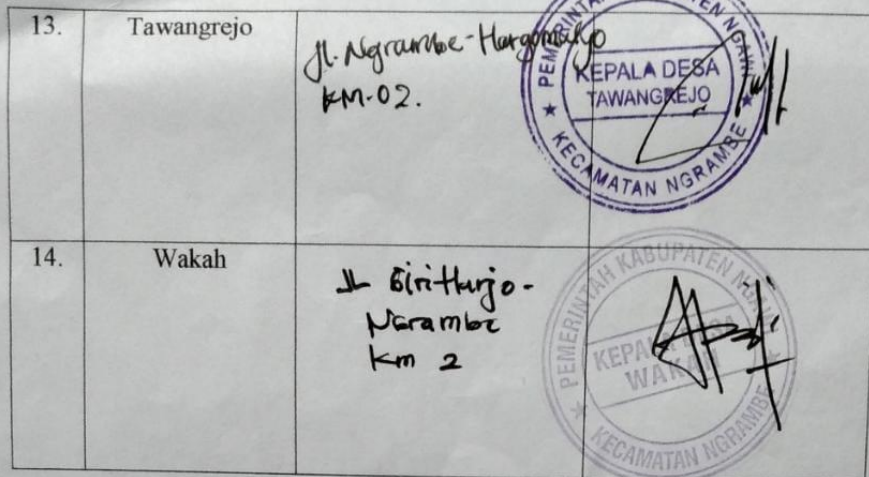 13.
Tawangrejo
Jl. Ngrambe-Hargomulyo
KM-02.
PEMERINTAH KABUPATEN NGAWI
KEPALA DESA
TAWANGREJO
KECAMATAN NGRAMBE
14.
Wakah
JL Girittarjo-
Ngrambe
Km 2
PEMERINTAH KABUPATEN NGAWI
KEPALA DESA
WAKAH
KECAMATAN NGRAMBE